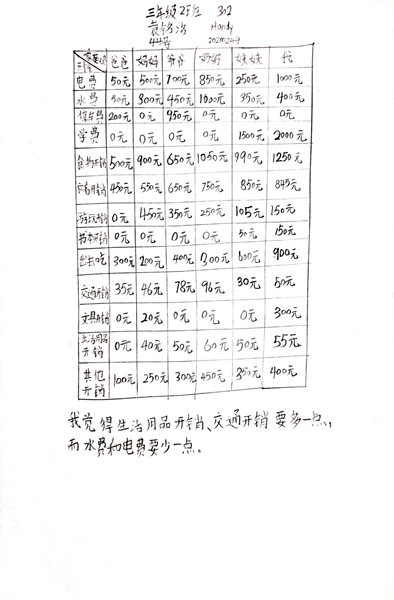 三年级2班 302
Handy
44号
开销 爸爸 妈妈 爷爷 奶奶 妹妹
电费 50元 500元 700元 850元 250元 1000元
水费 50元 300元 450元 1000元 350元 400元
停车费 200元 0元 950元 0元 0元 0元
学费 0元 0元 0元 0元 1500元 2000元
食物开销 500元 900元 650元 1050元 990元 1250元
开销 450元 550元 650元 750元 850元 845元
开销 0元 450元 350元 250元 105元 150元
书本开销 0元 0元 0元 0元 50元 150元
出去吃 300元 200元 400元 300元 600元 900元
交通开销 35元 46元 78元 96元 30元 50元
文具开销 0元 20元 0元 0元 0元 300元
生活用品开销 0元 40元 50元 60元 50元 55元
其他开销 100元 250元 300元 450元 350元 400元
我觉得生活用品开销、交通开销要多一点,
而水费和电费要少一点。